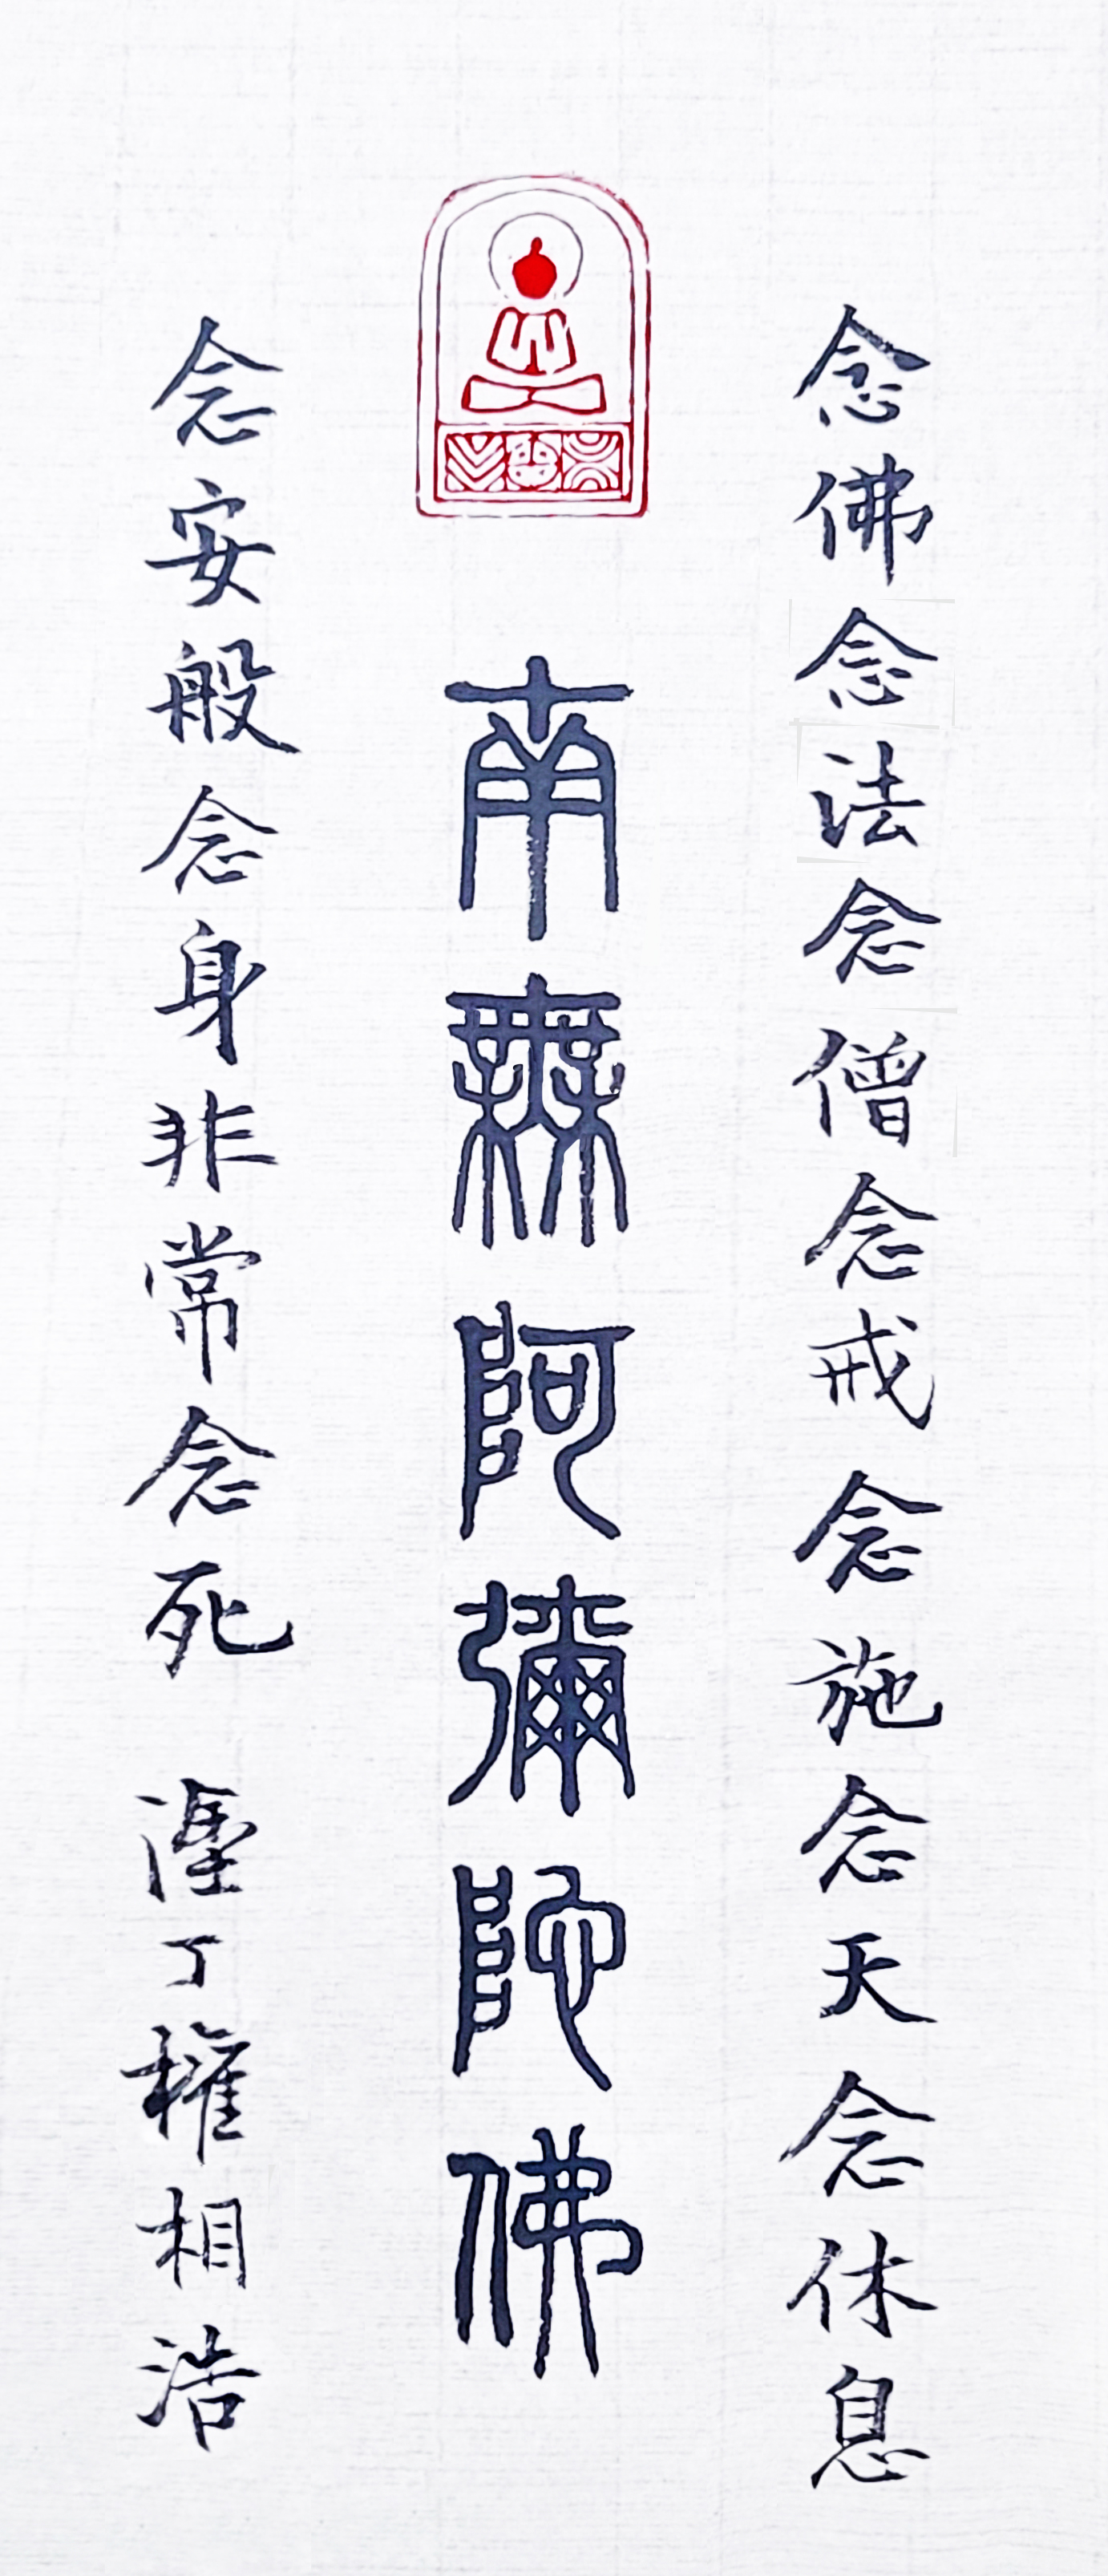 念佛念法念僧念戒念施念天念休息
南無阿彌陀佛
念安般念身非常念死 丁權相浩